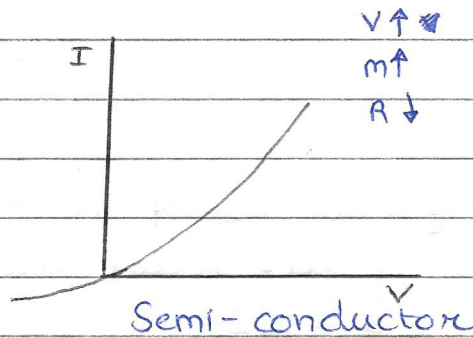 V ↑
I
m↑
R ↓
V
Semi-conductor